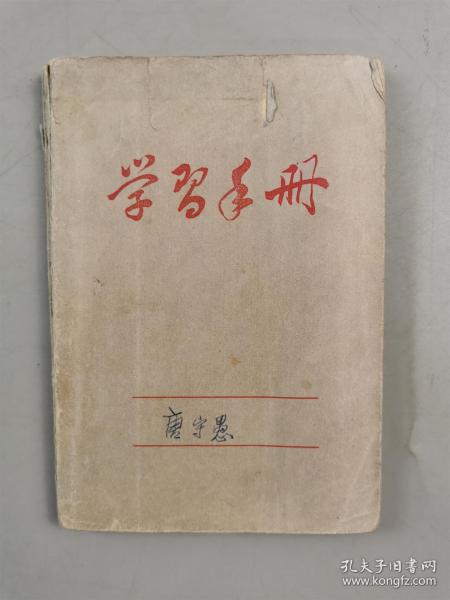 学習手册
唐守愚
孔夫子旧书网
www.kongfz.com